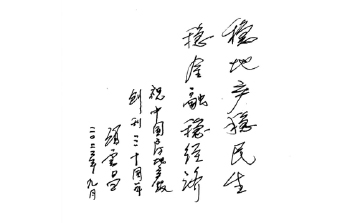 稳地产稳民生
稳金融稳经济
祝中国房地产报
创刊二十周年
二〇二三年九月